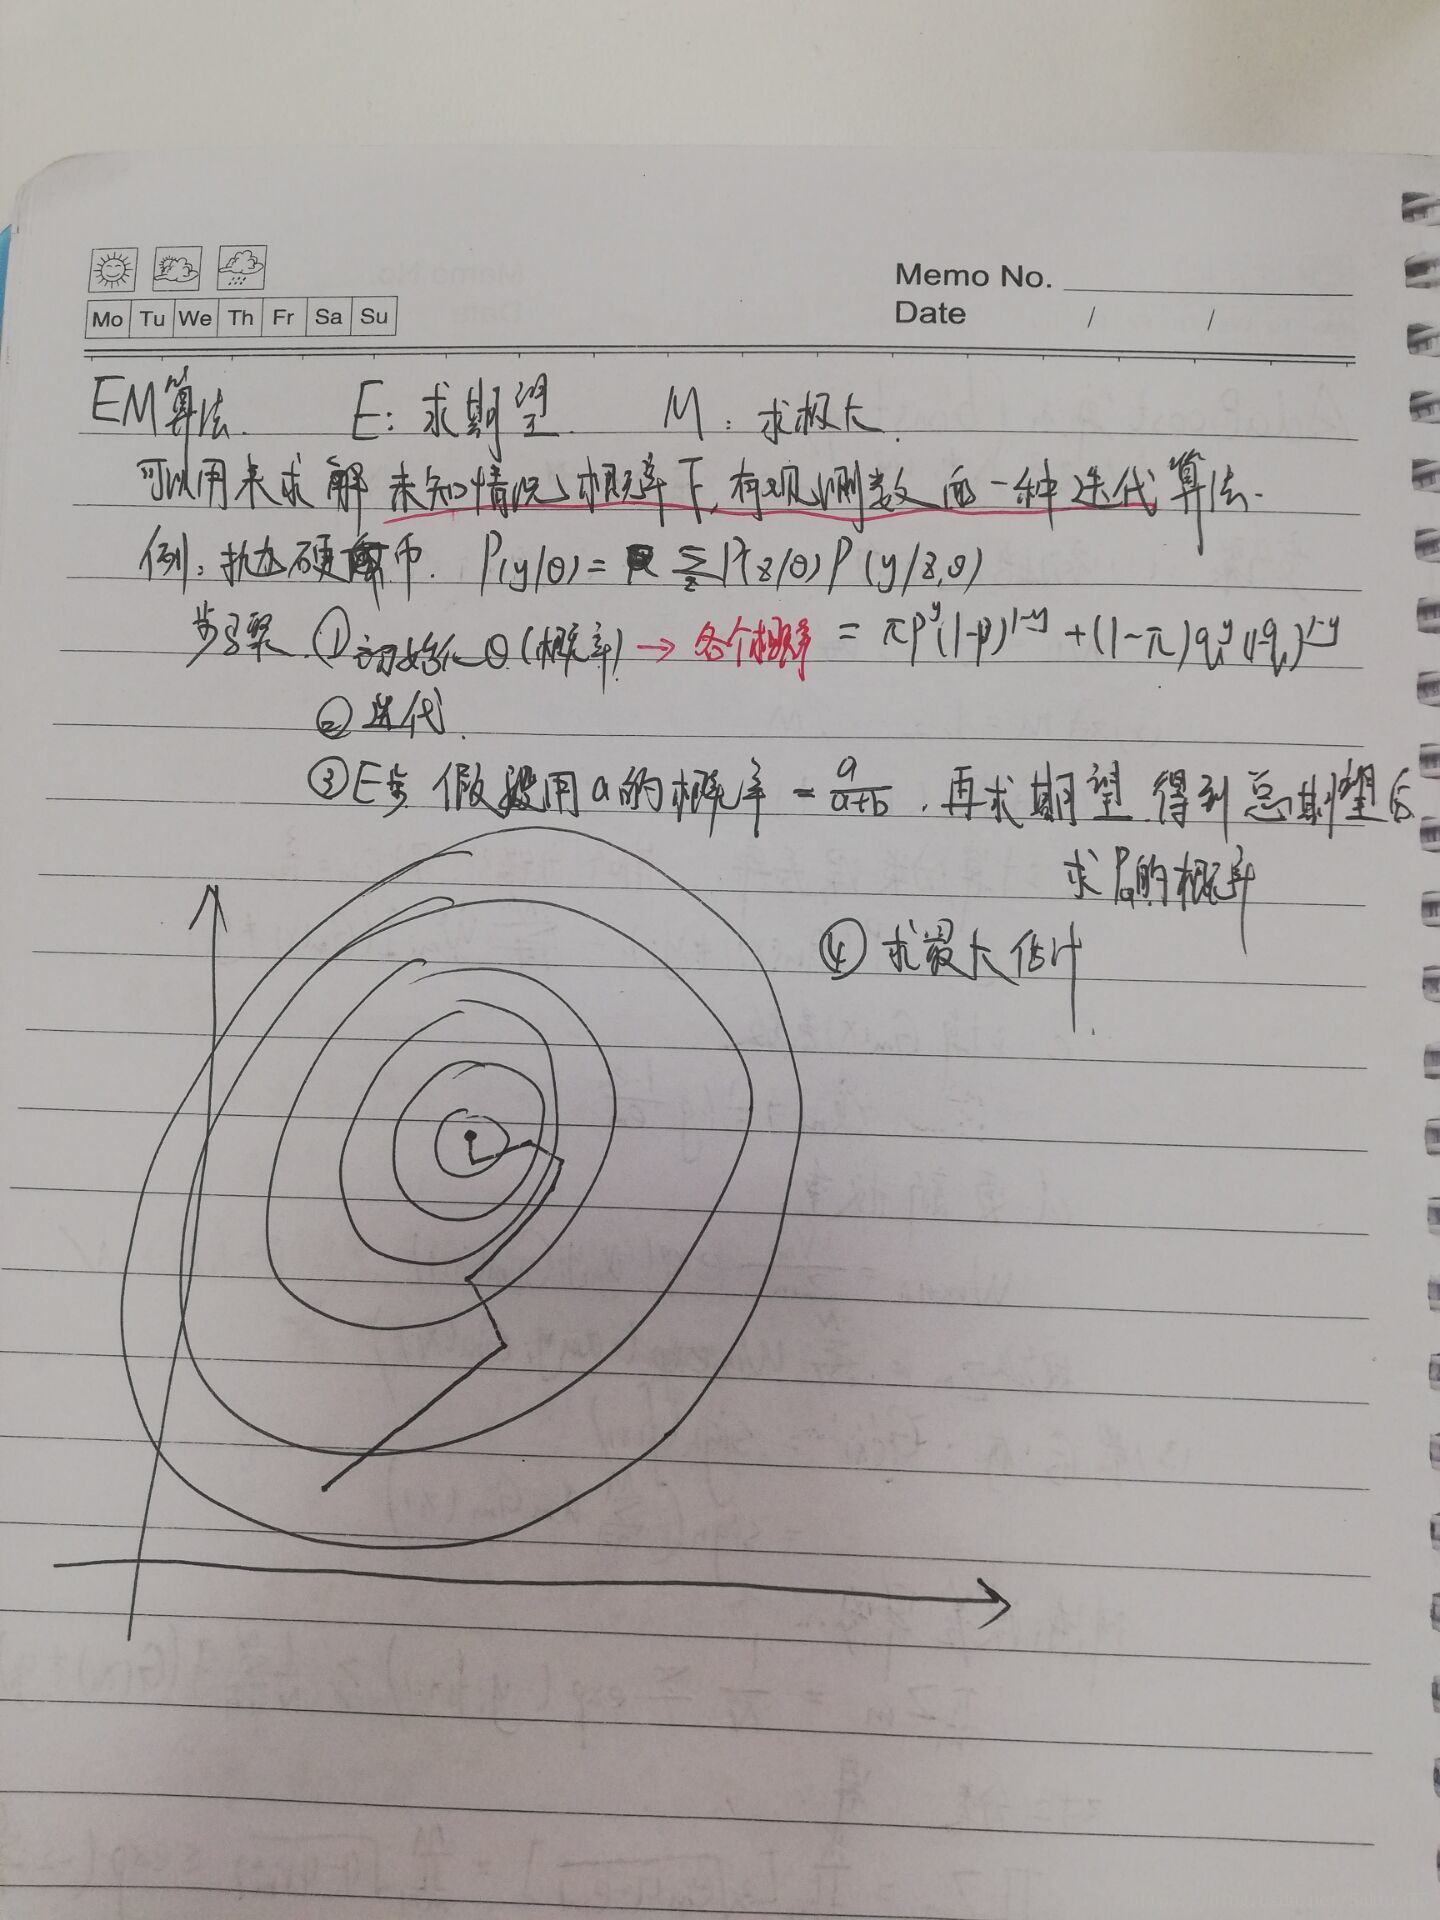 Memo No.
Mo Tu We Th Fr Sa Su
Date / /
EM算法. E: 求期望. M: 求极大.
可以用来求解未知情况概率下,有观测数而一种迭代算法.
例: 抛硬币. P(y/θ) = Σ_z P(z/θ)P(y/z,θ)
步骤. ①初始化θ(概率) → 各个概率 = πp^y(1-p)^{1-y} + (1-π)q^y(1-q)^{1-y}
②迭代.
③E步 假设用a的概率 = a/(a+b). 再求期望. 得到总期望后
求Pa的概率
④ 求最大估计.